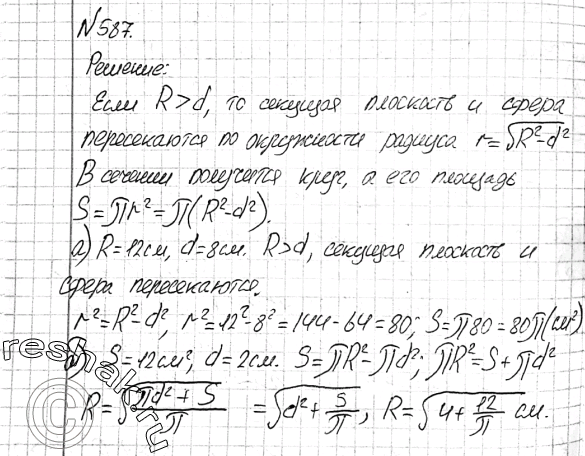 №587.
Решение:
Если R>d, то секущая плоскость и сфера
пересекаются по окружности радиуса r=√(R²-d²)
В сечении получается круг, а его площадь
S=πr²=π(R²-d²).
а) R=12см, d=8см. R>d, секущая плоскость и
сфера пересекаются.
r²=R²-d², r²=12²-8²=144-64=80; S=π80=80π(см²)
б) S=12см², d=2см. S=πR²-πd²; πR²=S+πd²
R=√((πd²+S)/π) =√(d²+S/π), R=√(4+12/π) см.
reshak.ru
©